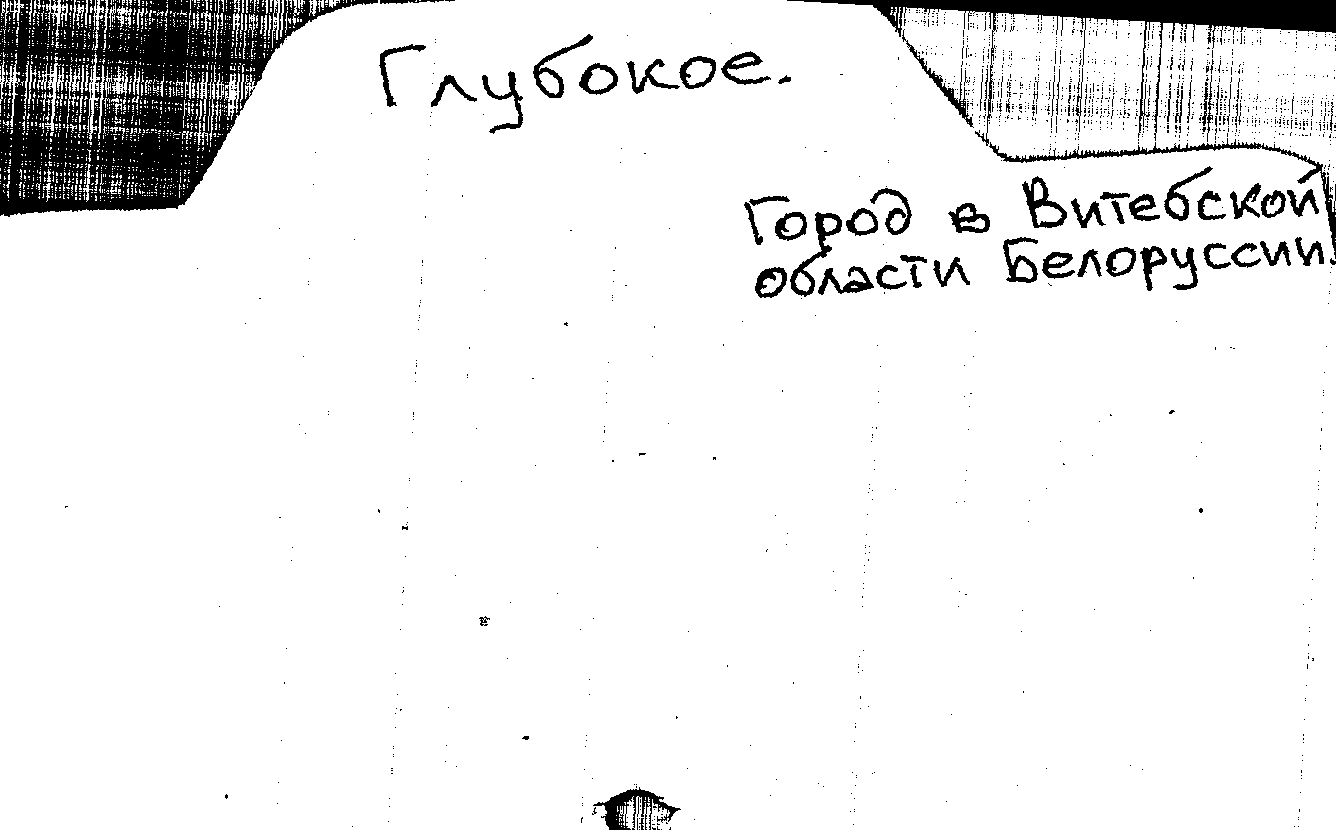 Глубокое.
Город в Витебской
области Белоруссии.